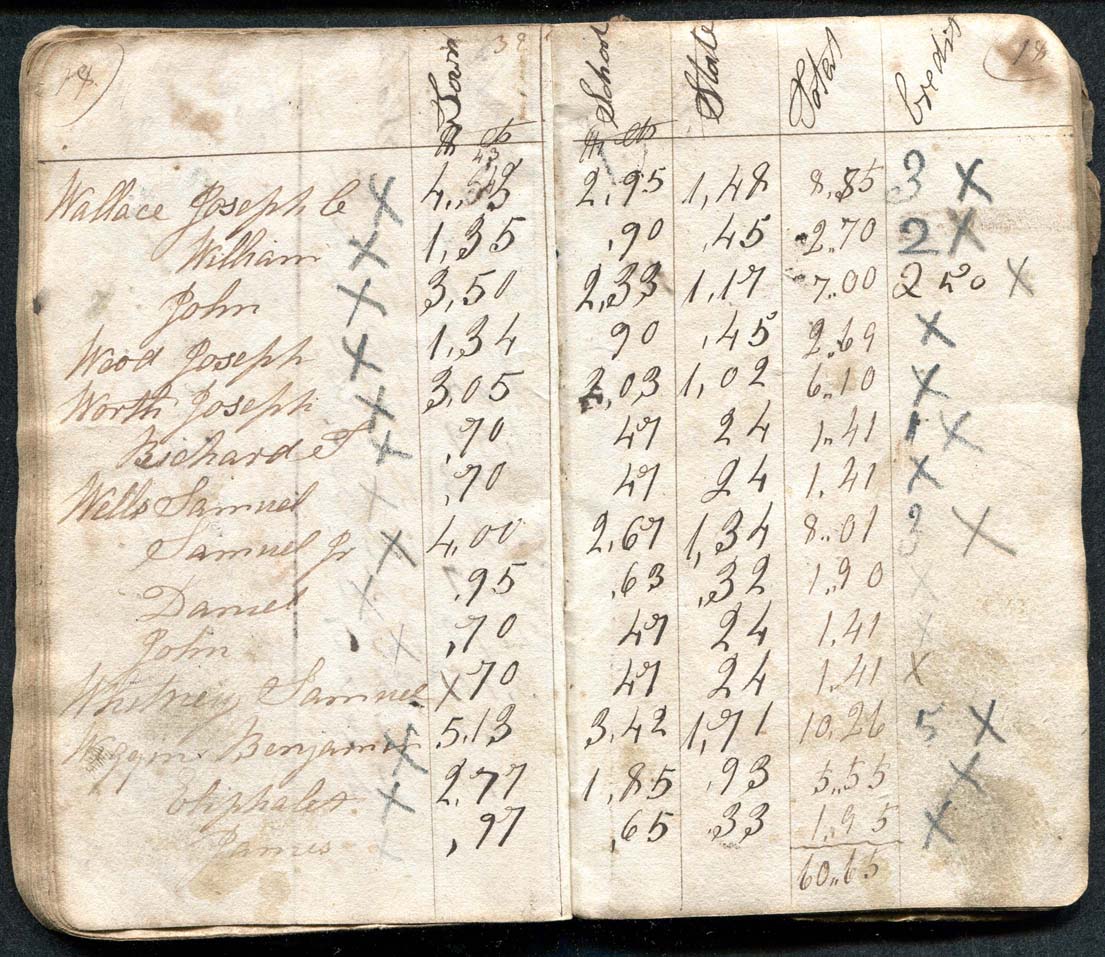 18 Town 32 School State Total Credit 18
$ cts $ cts
43
Wallace Joseph C X 4,43 2,95 1,48 8,85 3 X
William X 1,35 ,90 ,45 2,70 2 X
John X 3,50 2,33 1,17 7,00 2 50 X
Wood Joseph X 1,34 90 ,45 2,69 X
Worth Joseph X 3,05 2,03 1,02 6,10 X
Richard T X ,70 47 24 1,41 1 X
Wells Samuel X ,70 47 24 1,41 X
Samuel Jr X 4,00 2,67 1,34 8,01 3 X
Daniel X ,95 ,63 ,32 1,90 X
John X ,70 47 24 1,41 X
Whitney Samuel X 70 47 24 1,41 X
Wiggin Benjamin X 5,13 3,42 1,71 10,26 5 X
Eliphalet X 2,77 1,85 ,93 5,55 X
James X ,97 ,65 ,33 1,95 X
60,65